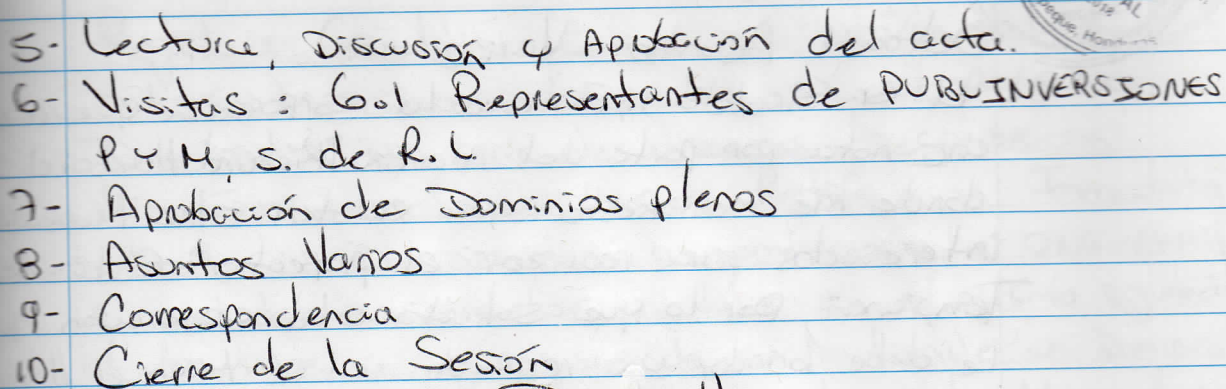 5- Lectura, Discusión y Aprobación del acta.
6- Visitas: 6.1 Representantes de PUBLINVERSIONES
P Y M, S. de R. L
7- Aprobación de Dominios plenos
8- Asuntos Varios
9- Correspondencia
10- Cierre de la Sesión